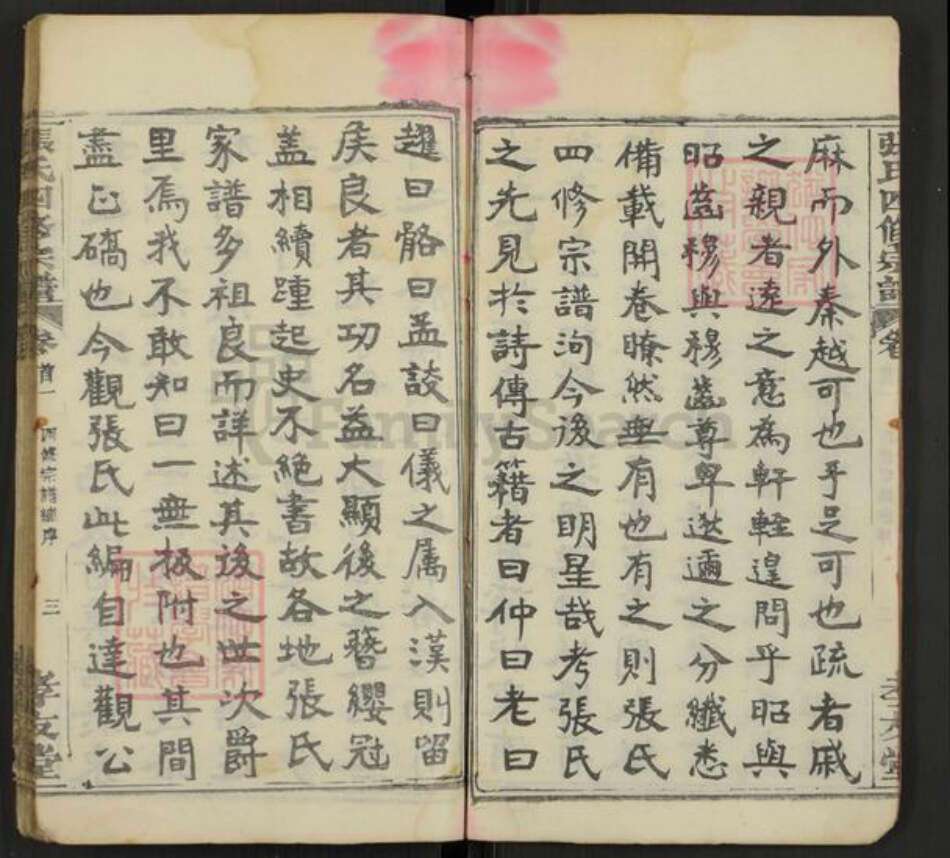 麻而外秦越可也手足可也疏者戚
之親者遠之意為軒輊遑問乎昭與
昭齒穆與穆齒尊卑遐邇之分纖悉
備載開卷瞭然無有也有之則張氏
四修宗譜洵今後之明星哉考張氏
之先見於詩傳古籍者曰仲曰老曰
趯曰骼曰孟談曰儀之属入漢則留
矦良者其功名益大顯後之簪纓冠
盖相續踵起史不絶書故各地張氏
家譜多祖良而詳述其後之世次爵
里焉我不敢知曰一無扳附也其間
盡正礄也今觀張氏此編自達觀公
張氏四修宗譜
卷首一
四修宗譜總序
三
孝友堂